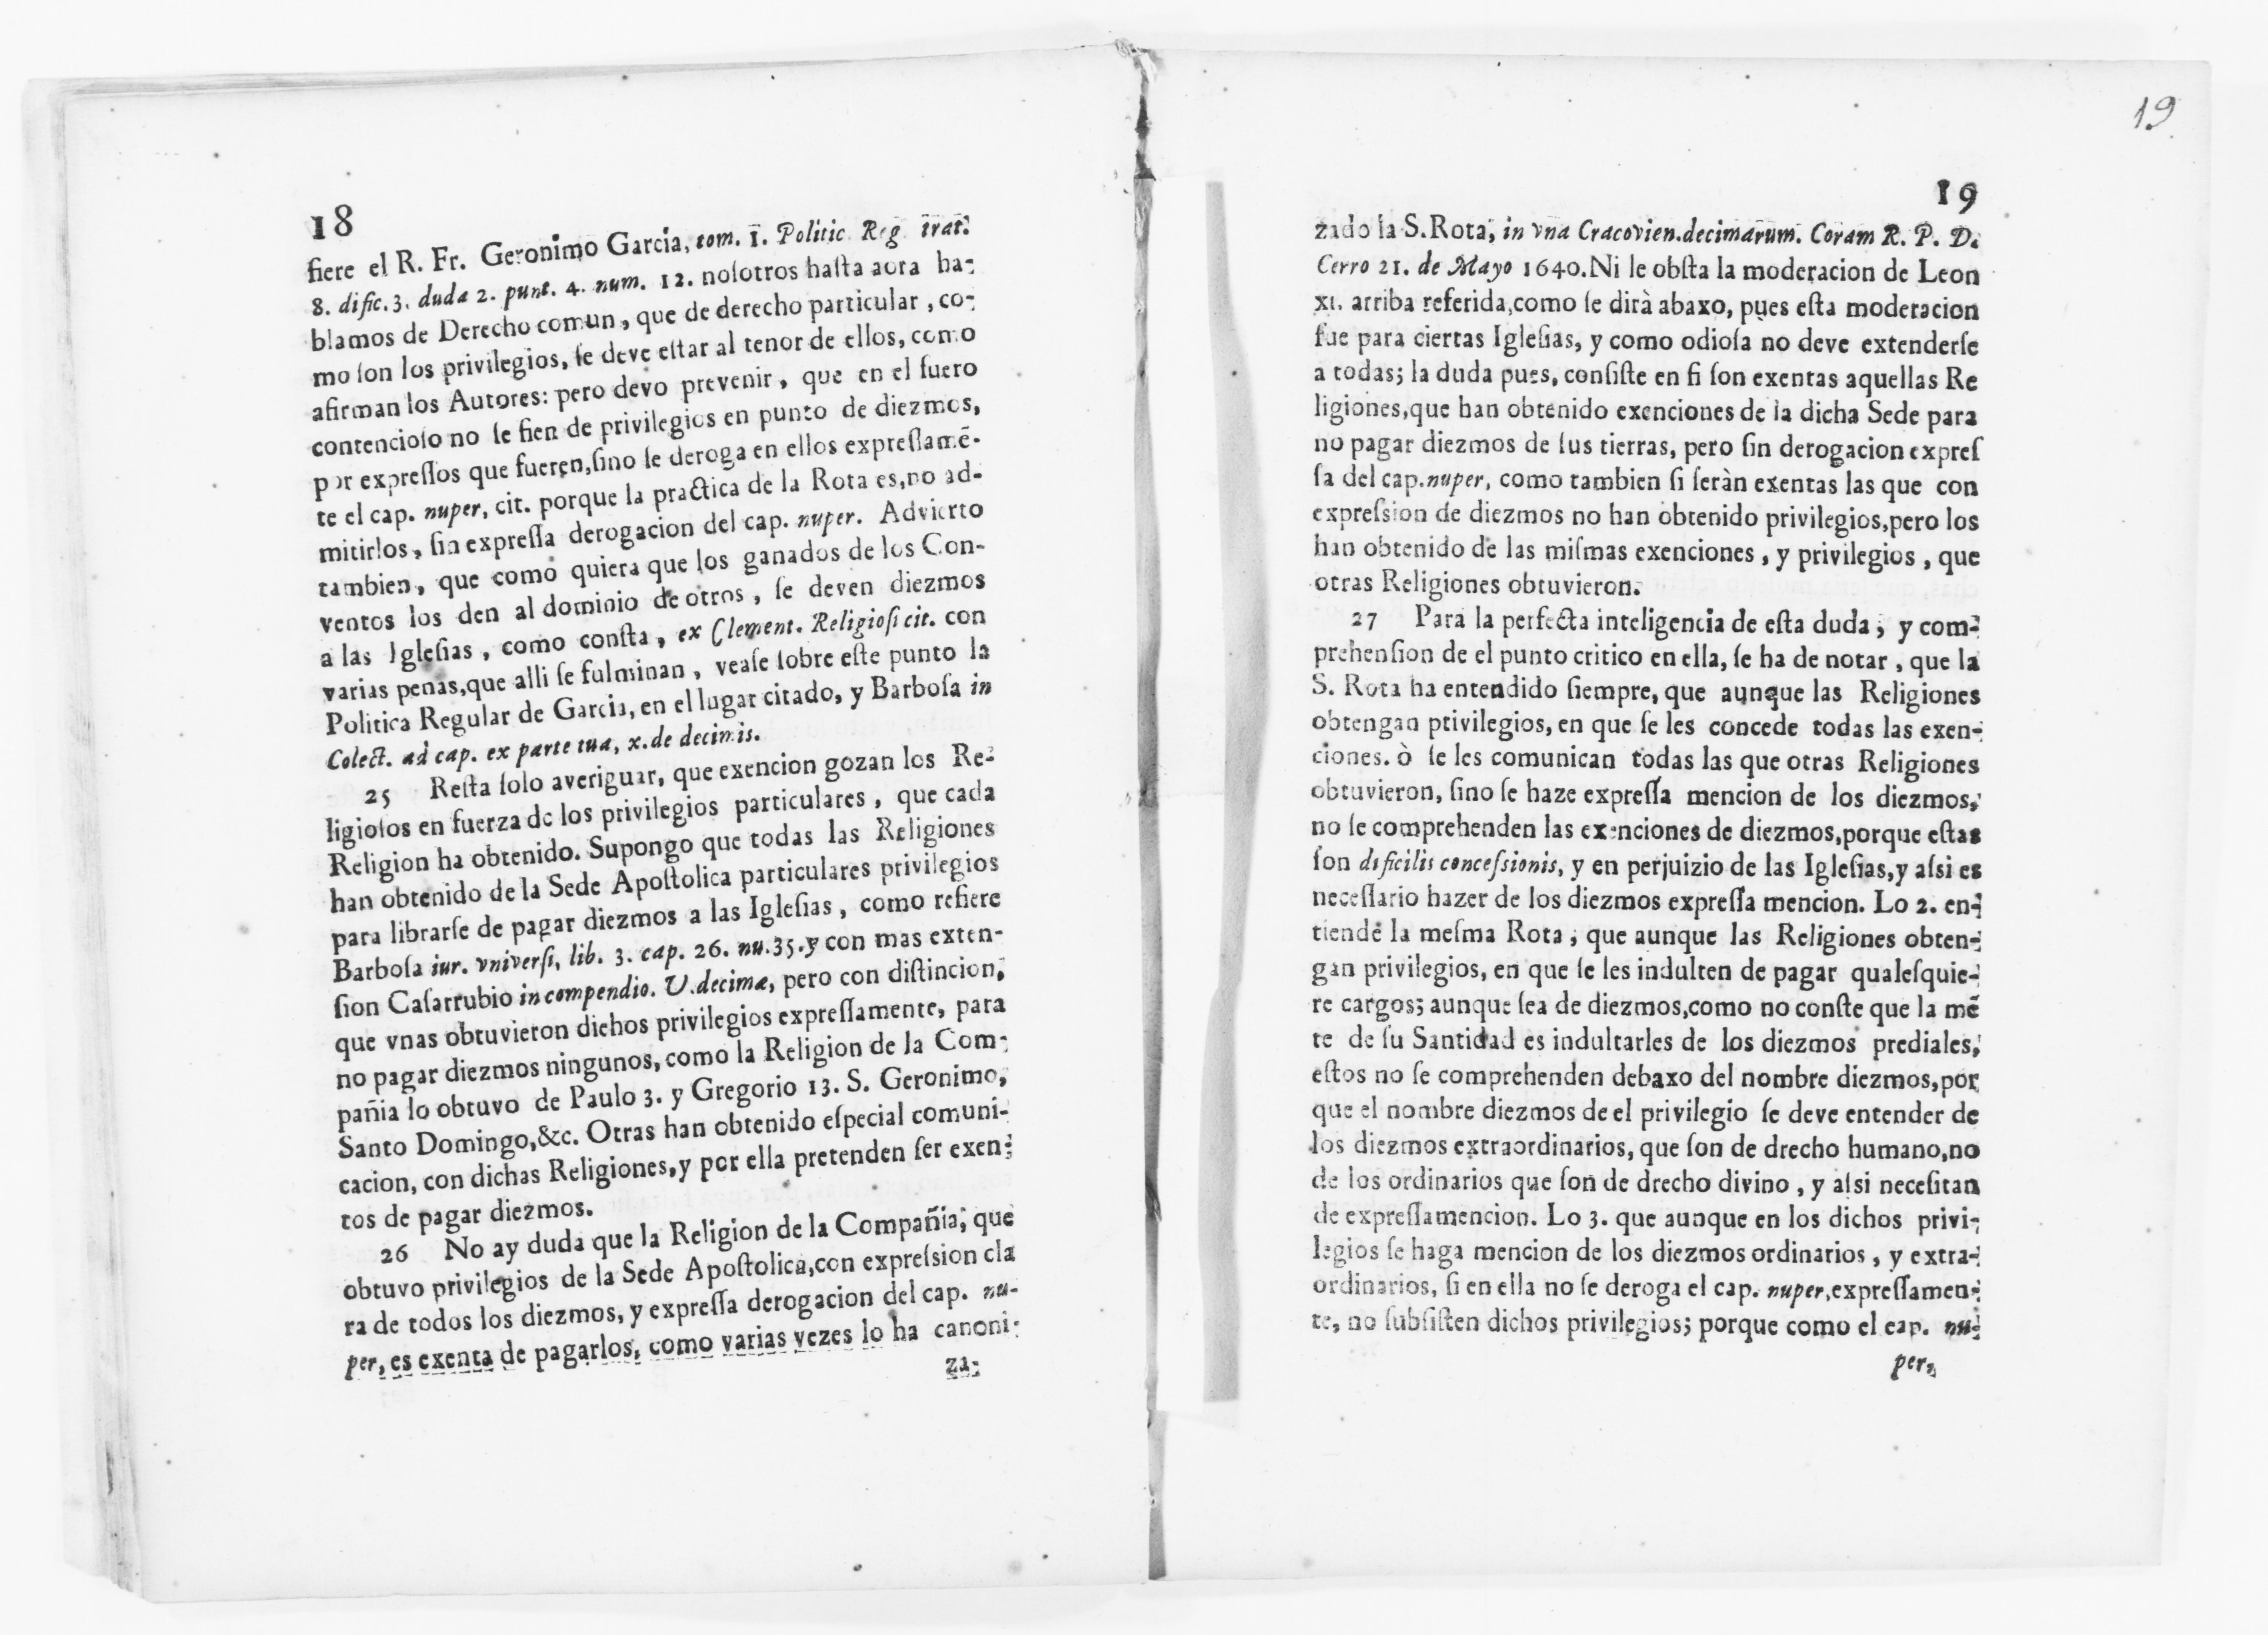 18
fiere el R. Fr. Geronimo Garcia, tom. 1. Politic. Reg. trat.
8. dific. 3. duda 2. punt. 4. num. 12. noſotros haſta aora ha-
blamos de Derecho comun, que de derecho particular, co-
mo ſon los privilegios, ſe deve eſtar al tenor de ellos, como
afirman los Autores: pero devo prevenir, que en el fuero
contencioſo no ſe fien de privilegios en punto de diezmos,
por expreſſos que fueren, ſino ſe deroga en ellos expreſſamẽ-
te el cap. nuper, cit. porque la practica de la Rota es, no ad-
mitirlos, ſin expreſſa derogacion del cap. nuper. Advierto
tambien, que como quiera que los ganados de los Con-
ventos los den al dominio de otros, ſe deven diezmos
a las Igleſias, como conſta, ex Clement. Religioſi cit. con
varias penas, que alli ſe fulminan, veaſe ſobre eſte punto la
Politica Regular de Garcia, en el lugar citado, y Barboſa in
Colect. ad cap. ex parte tua, x. de decimis.
25 Reſta ſolo averiguar, que exencion gozan los Re-
ligioſos en fuerza de los privilegios particulares, que cada
Religion ha obtenido. Supongo que todas las Religiones
han obtenido de la Sede Apoſtolica particulares privilegios
para librarſe de pagar diezmos a las Igleſias, como refiere
Barboſa iur. vniverſi, lib. 3. cap. 26. nu. 35. y con mas exten-
ſion Caſarrubio in compendio. V. decimæ, pero con diſtincion,
que vnas obtuvieron dichos privilegios expreſſamente, para
no pagar diezmos ningunos, como la Religion de la Com-
pañia lo obtuvo de Paulo 3. y Gregorio 13. S. Geronimo,
Santo Domingo, &c. Otras han obtenido eſpecial comuni-
cacion, con dichas Religiones, y por ella pretenden ſer exen-
tos de pagar diezmos.
26 No ay duda que la Religion de la Compañia, que
obtuvo privilegios de la Sede Apoſtolica, con expreſsion cla
ra de todos los diezmos, y expreſſa derogacion del cap. nu-
per, es exenta de pagarlos, como varias vezes lo ha canoni-
za-
19
19
zado la S. Rota, in vna Cracovien. decimarum. Coram R. P. D.
Cerro 21. de Mayo 1640. Ni le obſta la moderacion de Leon
XI. arriba referida, como ſe dirà abaxo, pues eſta moderacion
fue para ciertas Igleſias, y como odioſa no deve extenderſe
a todas; la duda pues, conſiſte en ſi ſon exentas aquellas Re
ligiones, que han obtenido exenciones de la dicha Sede para
no pagar diezmos de ſus tierras, pero ſin derogacion expreſ
ſa del cap. nuper, como tambien ſi ſeràn exentas las que con
expreſsion de diezmos no han obtenido privilegios, pero los
han obtenido de las miſmas exenciones, y privilegios, que
otras Religiones obtuvieron.
27 Para la perfecta inteligencia de eſta duda, y com-
prehenſion de el punto critico en ella, ſe ha de notar, que la
S. Rota ha entendido ſiempre, que aunque las Religiones
obtengan privilegios, en que ſe les concede todas las exen-
ciones. ò ſe les comunican todas las que otras Religiones
obtuvieron, ſino ſe haze expreſſa mencion de los diezmos,
no ſe comprehenden las exenciones de diezmos, porque eſtas
ſon dificilis conceſsionis, y en perjuizio de las Igleſias, y aſsi es
neceſſario hazer de los diezmos expreſſa mencion. Lo 2. en-
tiende la meſma Rota, que aunque las Religiones obten-
gan privilegios, en que ſe les indulten de pagar qualeſquie-
re cargos; aunque ſea de diezmos, como no conſte que la mẽ
te de ſu Santidad es indultarles de los diezmos prediales,
eſtos no ſe comprehenden debaxo del nombre diezmos, por
que el nombre diezmos de el privilegio ſe deve entender de
los diezmos extraordinarios, que ſon de drecho humano, no
de los ordinarios que ſon de drecho divino, y aſsi neceſitan
de expreſſa mencion. Lo 3. que aunque en los dichos privi-
legios ſe haga mencion de los diezmos ordinarios, y extra-
ordinarios, ſi en ella no ſe deroga el cap. nuper, expreſſamen-
te, no ſubſiſten dichos privilegios; porque como el cap. nu-
per,